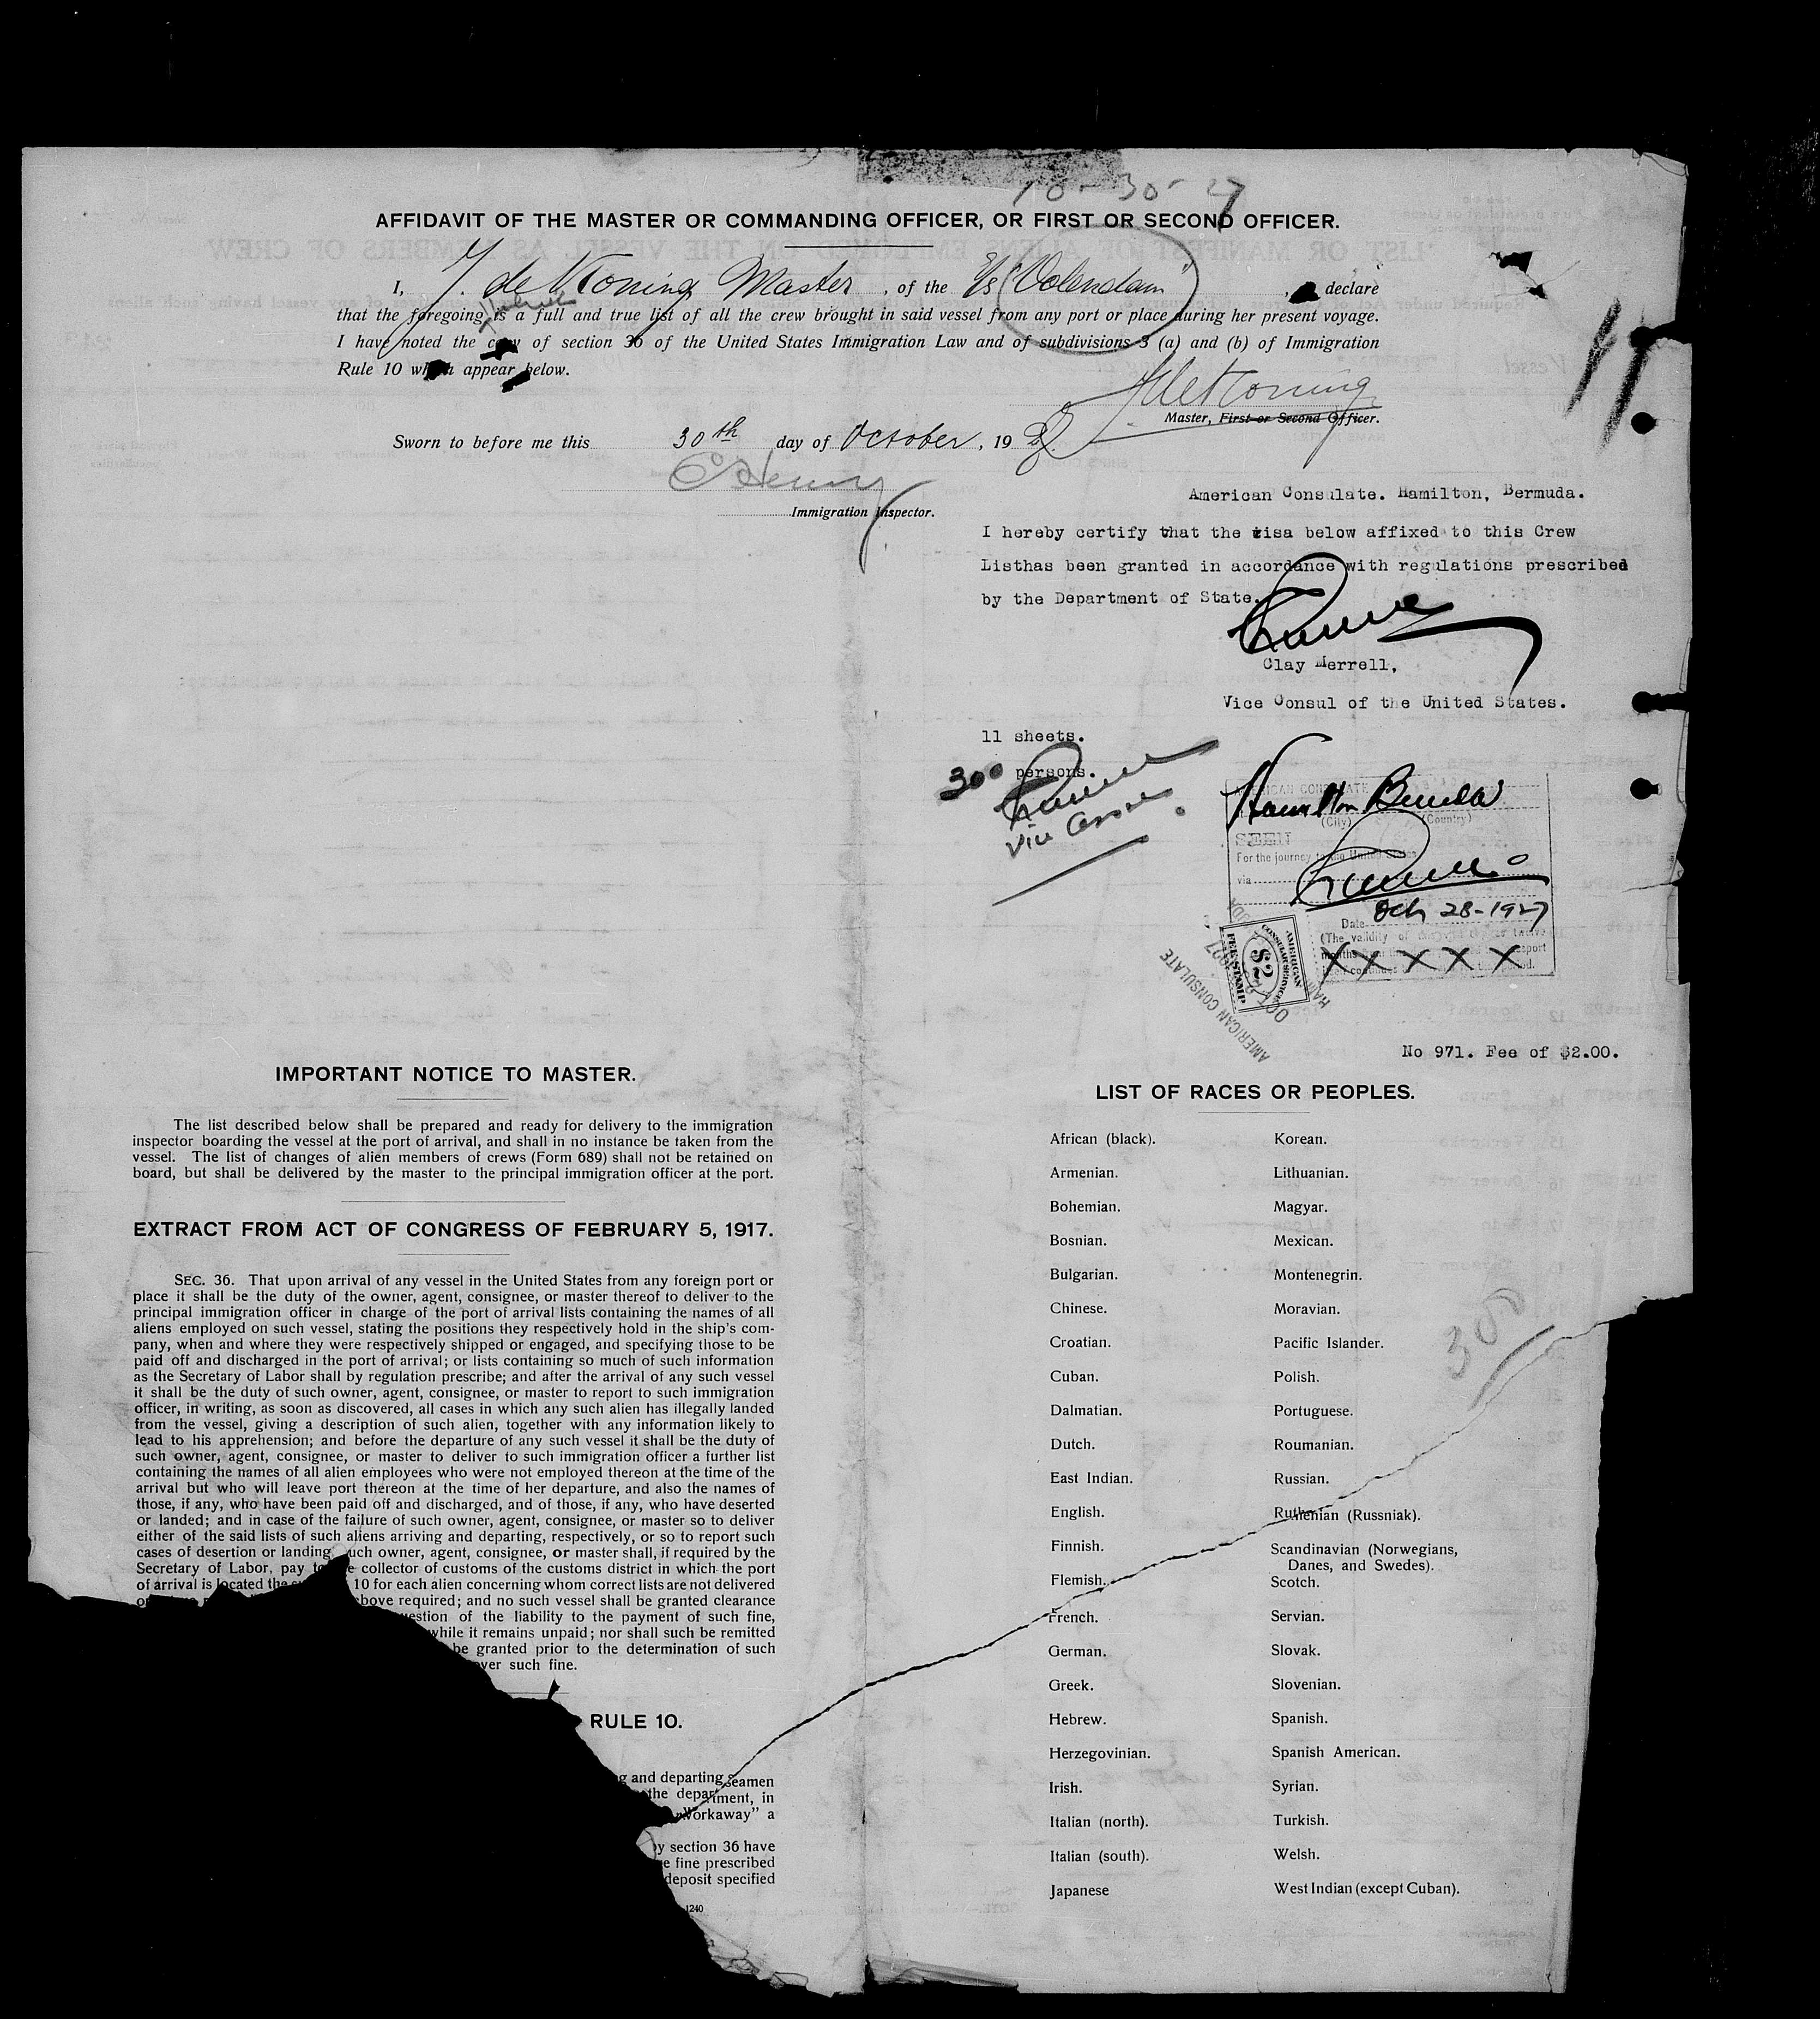 10-30-27
AFFIDAVIT OF THE MASTER OR COMMANDING OFFICER, OR FIRST OR SECOND OFFICER.
I, J. de Koning Master, of the S/s "Volendam", declare
that the foregoing is a full and true list of all the crew brought in said vessel from any port or place during her present voyage.
I have noted the copy of section 36 of the United States Immigration Law and of subdivisions 3 (a) and (b) of Immigration
Rule 10 which appear below.
J de Koning
Master, First or Second Officer.
Sworn to before me this 30th day of October, 1927.
Immigration Inspector.
11
American Consulate. Hamilton, Bermuda.
I hereby certify that the visa below affixed to this Crew
Listhas been granted in accordance with regulations prescribed
by the Department of State.
Clay Merrell,
Vice Consul of the United States.
11 sheets.
300 persons.
Vice Consul
AMERICAN CONSULATE
Hamilton Bermuda
(City) (Country)
SEEN
For the journey to the United States
via
Oct 28-1927
Date
(The validity of
X X X X X
AMERICAN
CONSULAR SERVICE
$2
FEE STAMP
AMERICAN CONSULATE
No 971. Fee of $2.00.
IMPORTANT NOTICE TO MASTER.
The list described below shall be prepared and ready for delivery to the immigration
inspector boarding the vessel at the port of arrival, and shall in no instance be taken from the
vessel. The list of changes of alien members of crews (Form 689) shall not be retained on
board, but shall be delivered by the master to the principal immigration officer at the port.
EXTRACT FROM ACT OF CONGRESS OF FEBRUARY 5, 1917.
SEC. 36. That upon arrival of any vessel in the United States from any foreign port or
place it shall be the duty of the owner, agent, consignee, or master thereof to deliver to the
principal immigration officer in charge of the port of arrival lists containing the names of all
aliens employed on such vessel, stating the positions they respectively hold in the ship's com-
pany, when and where they were respectively shipped or engaged, and specifying those to be
paid off and discharged in the port of arrival; or lists containing so much of such information
as the Secretary of Labor shall by regulation prescribe; and after the arrival of any such vessel
it shall be the duty of such owner, agent, consignee, or master to report to such immigration
officer, in writing, as soon as discovered, all cases in which any such alien has illegally landed
from the vessel, giving a description of such alien, together with any information likely to
lead to his apprehension; and before the departure of any such vessel it shall be the duty of
such owner, agent, consignee, or master to deliver to such immigration officer a further list
containing the names of all alien employees who were not employed thereon at the time of the
arrival but who will leave port thereon at the time of her departure, and also the names of
those, if any, who have been paid off and discharged, and of those, if any, who have deserted
or landed; and in case of the failure of such owner, agent, consignee, or master so to deliver
either of the said lists of such aliens arriving and departing, respectively, or so to report such
cases of desertion or landing, such owner, agent, consignee, or master shall, if required by the
Secretary of Labor, pay to the collector of customs of the customs district in which the port
of arrival is located the 10 for each alien concerning whom correct lists are not delivered
above required; and no such vessel shall be granted clearance
question of the liability to the payment of such fine,
while it remains unpaid; nor shall such be remitted
be granted prior to the determination of such
over such fine.
RULE 10.
and departing seamen
the department, in
"Workaway" a
by section 36 have
fine prescribed
deposit specified
1240
LIST OF RACES OR PEOPLES.
African (black).
Armenian.
Bohemian.
Bosnian.
Bulgarian.
Chinese.
Croatian.
Cuban.
Dalmatian.
Dutch.
East Indian.
English.
Finnish.
Flemish.
French.
German.
Greek.
Hebrew.
Herzegovinian.
Irish.
Italian (north).
Italian (south).
Japanese
Korean.
Lithuanian.
Magyar.
Mexican.
Montenegrin.
Moravian.
Pacific Islander.
Polish.
Portuguese.
Roumanian.
Russian.
Ruthenian (Russniak).
Scandinavian (Norwegians,
Danes, and Swedes).
Scotch.
Servian.
Slovak.
Slovenian.
Spanish.
Spanish American.
Syrian.
Turkish.
Welsh.
West Indian (except Cuban).
300